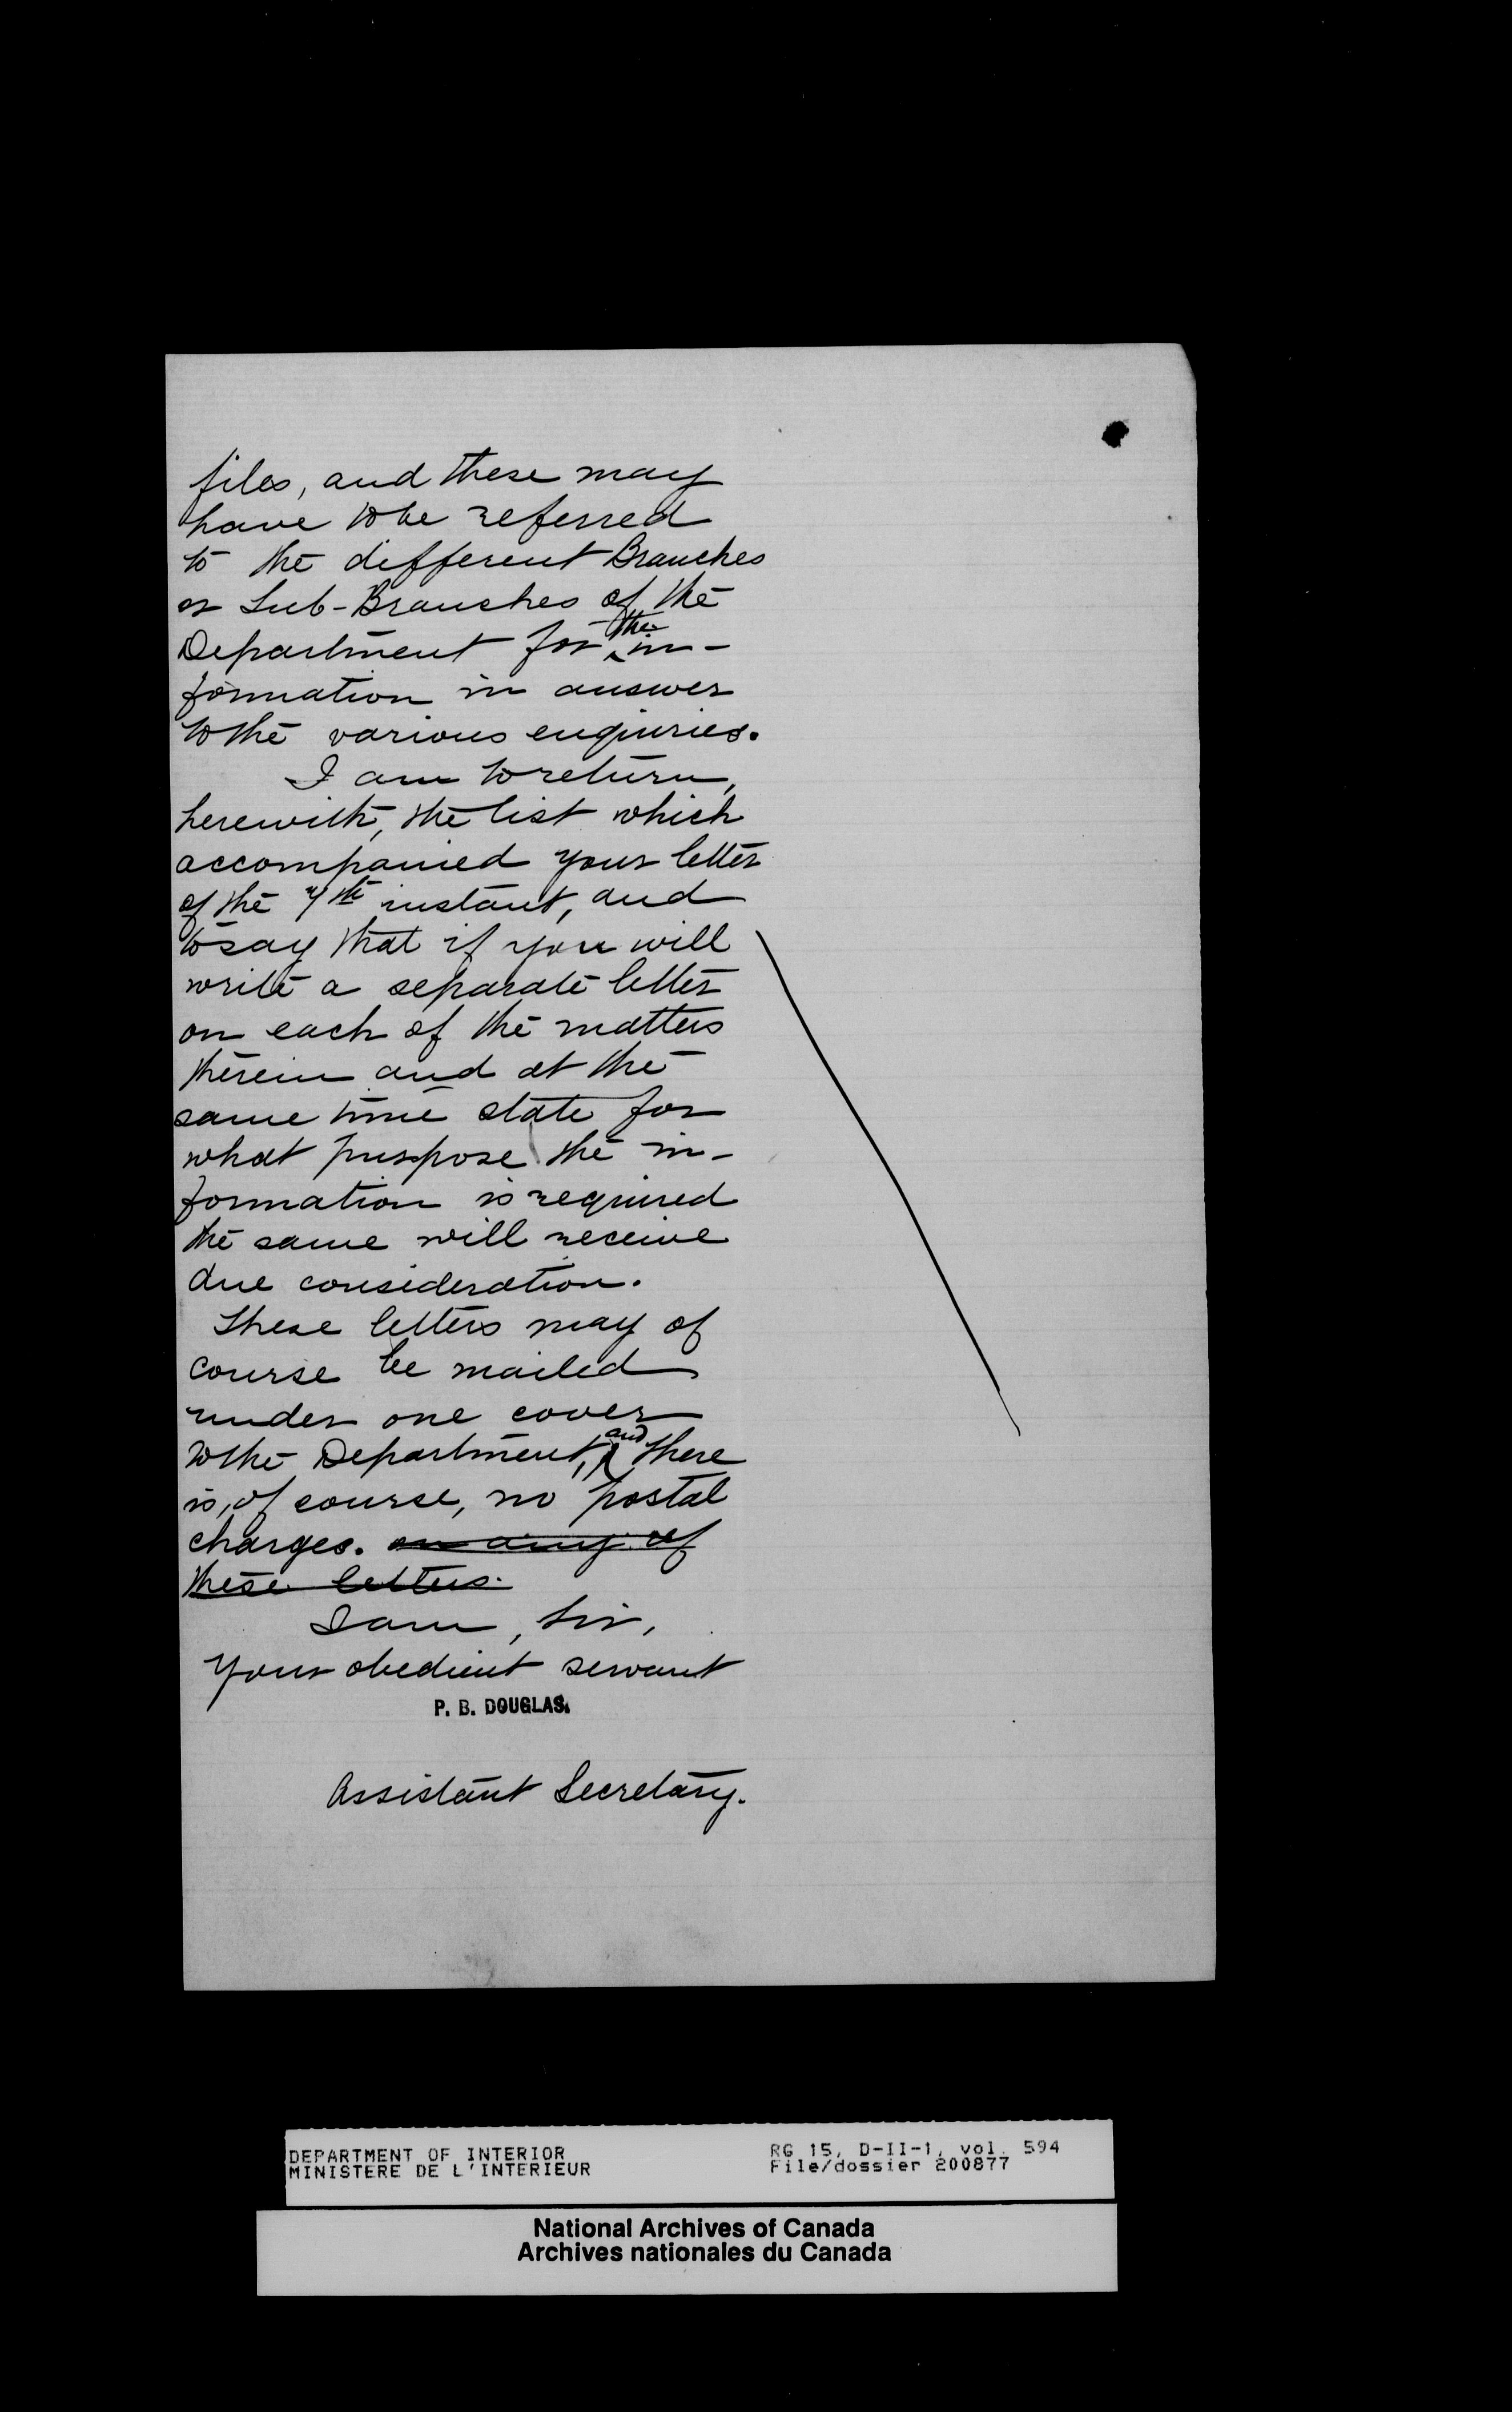 files, and these may
have to be referred
to the different Branches
or Sub-Branches of the
Department for the in-
formation in answer
to the various enquiries.
I am to return,
herewith, the list which
accompanied your letter
of the 7th instant, and
to say that if you will
write a separate letter
on each of the matters
therein and at the
same time state for
what purpose the in-
formation is required
the same will receive
due consideration.
These letters may of
course be mailed
under one cover
to the Department, and there
is, of course, no postal
charges. on any of
these letters.
I am, Sir,
Your obedient servant
P. B. DOUGLAS.
Assistant Secretary.
DEPARTMENT OF INTERIOR
MINISTERE DE L'INTERIEUR
RG 15, D-II-1, vol. 594
File/dossier 200877
National Archives of Canada
Archives nationales du Canada